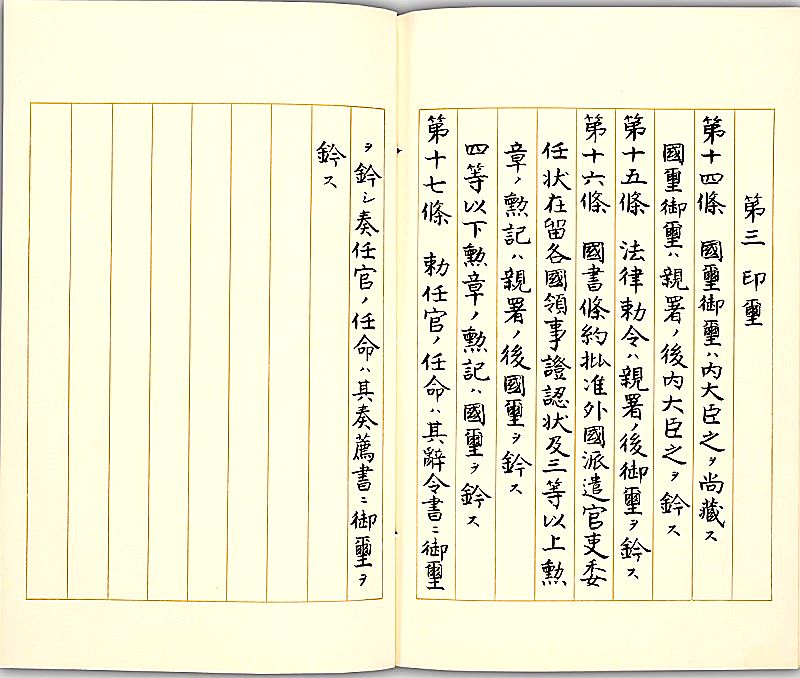 第三 印璽
第十四條 國璽御璽ハ內大臣之ヲ尚藏ス
國璽御璽ハ親署ノ後內大臣之ヲ鈐ス
第十五條 法律勅令ハ親署ノ後御璽ヲ鈐ス
第十六條 國書條約批准外國派遣官吏委
任狀在留各國領事證認狀及三等以上勲
章ノ勲記ハ親署ノ後國璽ヲ鈐ス
四等以下勲章ノ勲記ハ國璽ヲ鈐ス
第十七條 勅任官ノ任命ハ其辭令書ニ御璽
ヲ鈐シ奏任官ノ任命ハ其奏薦書ニ御璽ヲ
鈐ス